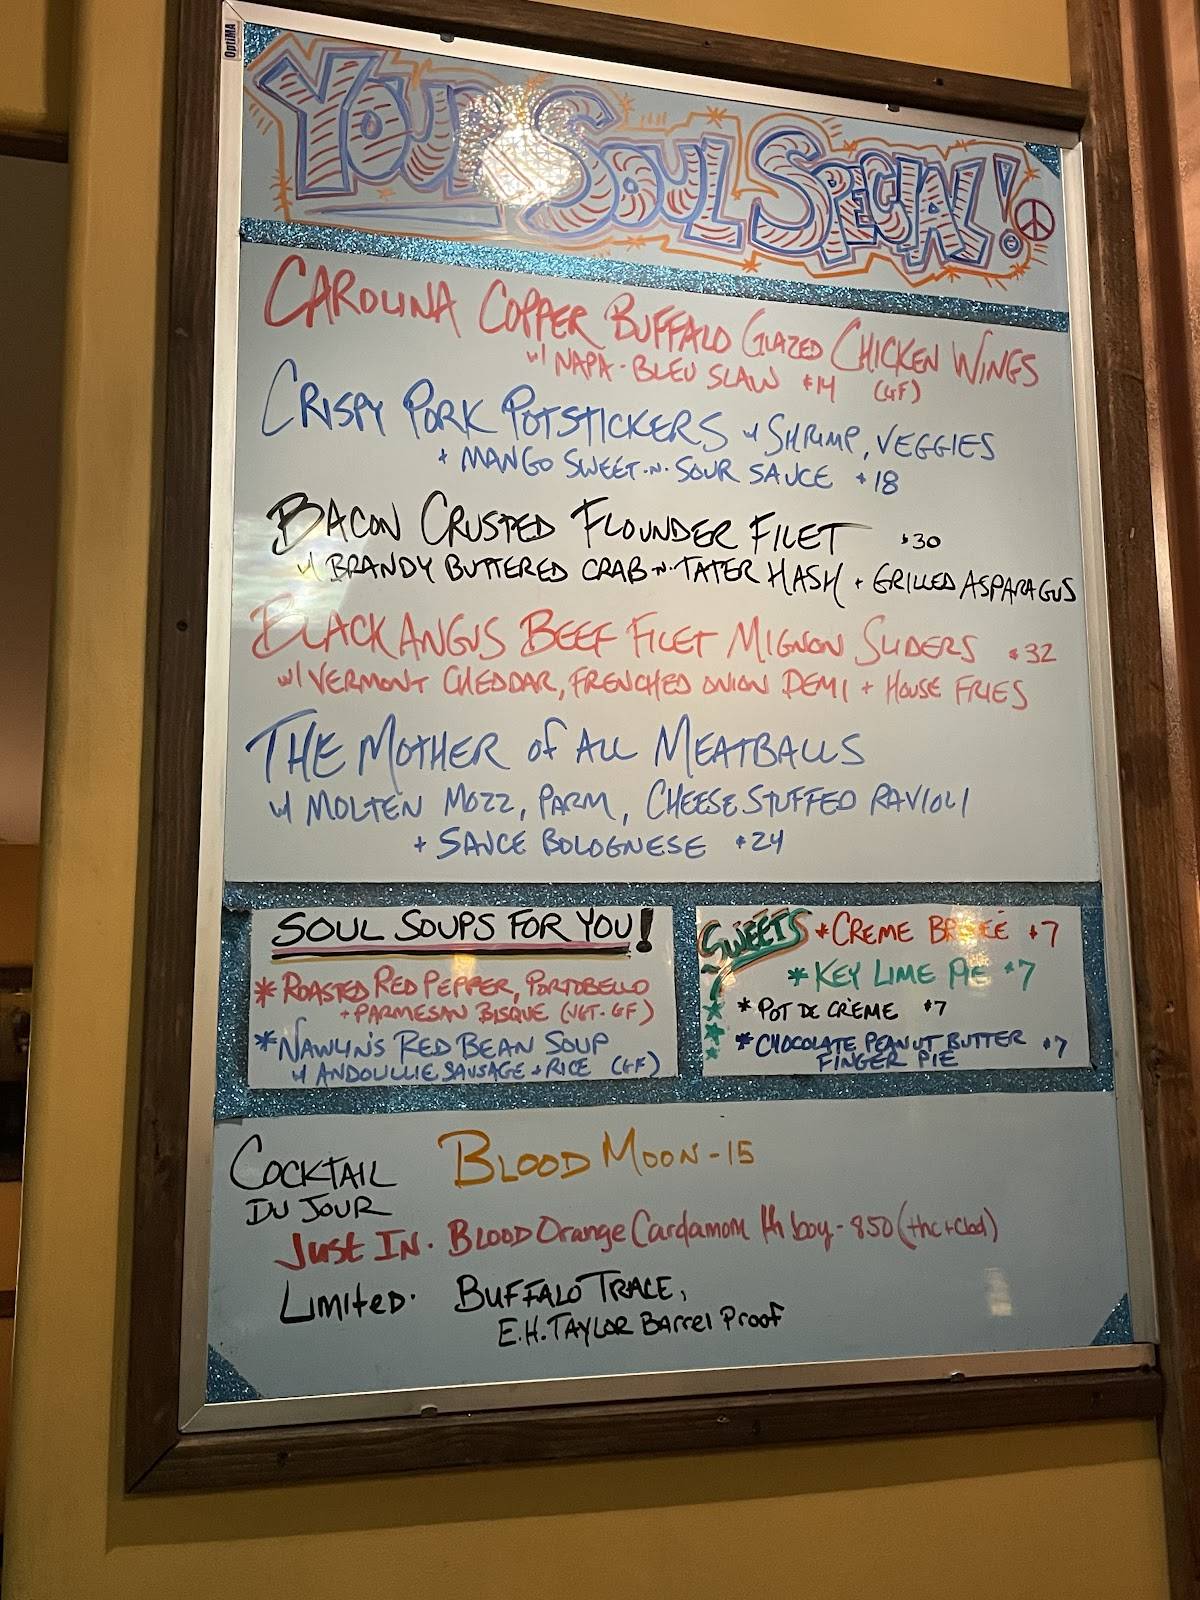 OptiMA
YOUR SOUL SPECIAL!
CAROLINA COPPER BUFFALO GLAZED CHICKEN WINGS
w/ NAPA-BLEU SLAW $14 (GF)
CRISPY PORK POTSTICKERS w/ SHRIMP, VEGGIES
+ MANGO SWEET-N-SOUR SAUCE $18
BACON CRUSTED FLOUNDER FILET $30
w/ BRANDY BUTTERED CRAB-N-TATER HASH + GRILLED ASPARAGUS
BLACK ANGUS BEEF FILET MIGNON SLIDERS $32
w/ VERMONT CHEDDAR, FRENCHED ONION DEMI + HOUSE FRIES
THE MOTHER OF ALL MEATBALLS
w/ MOLTEN MOZZ, PARM, CHEESE STUFFED RAVIOLI
+ SAUCE BOLOGNESE $24
SOUL SOUPS FOR YOU!
* ROASTED RED PEPPER, PORTOBELLO
+ PARMESAN BISQUE (VGT-GF)
* NAWLIN'S RED BEAN SOUP
w/ ANDOULLIE SAUSAGE + RICE (GF)
SWEETS * CREME BRULEE $7
* KEY LIME PIE $7
* POT DE CRÈME $7
* CHOCOLATE PEANUT BUTTER $7
FINGER PIE
COCKTAIL BLOOD MOON - 15
DU JOUR
JUST IN. BLOOD Orange Cardamom boy - 8.50 (thc + cbd)
LIMITED. BUFFALO TRACE,
E.H. TAYLOR BARREL PROOF